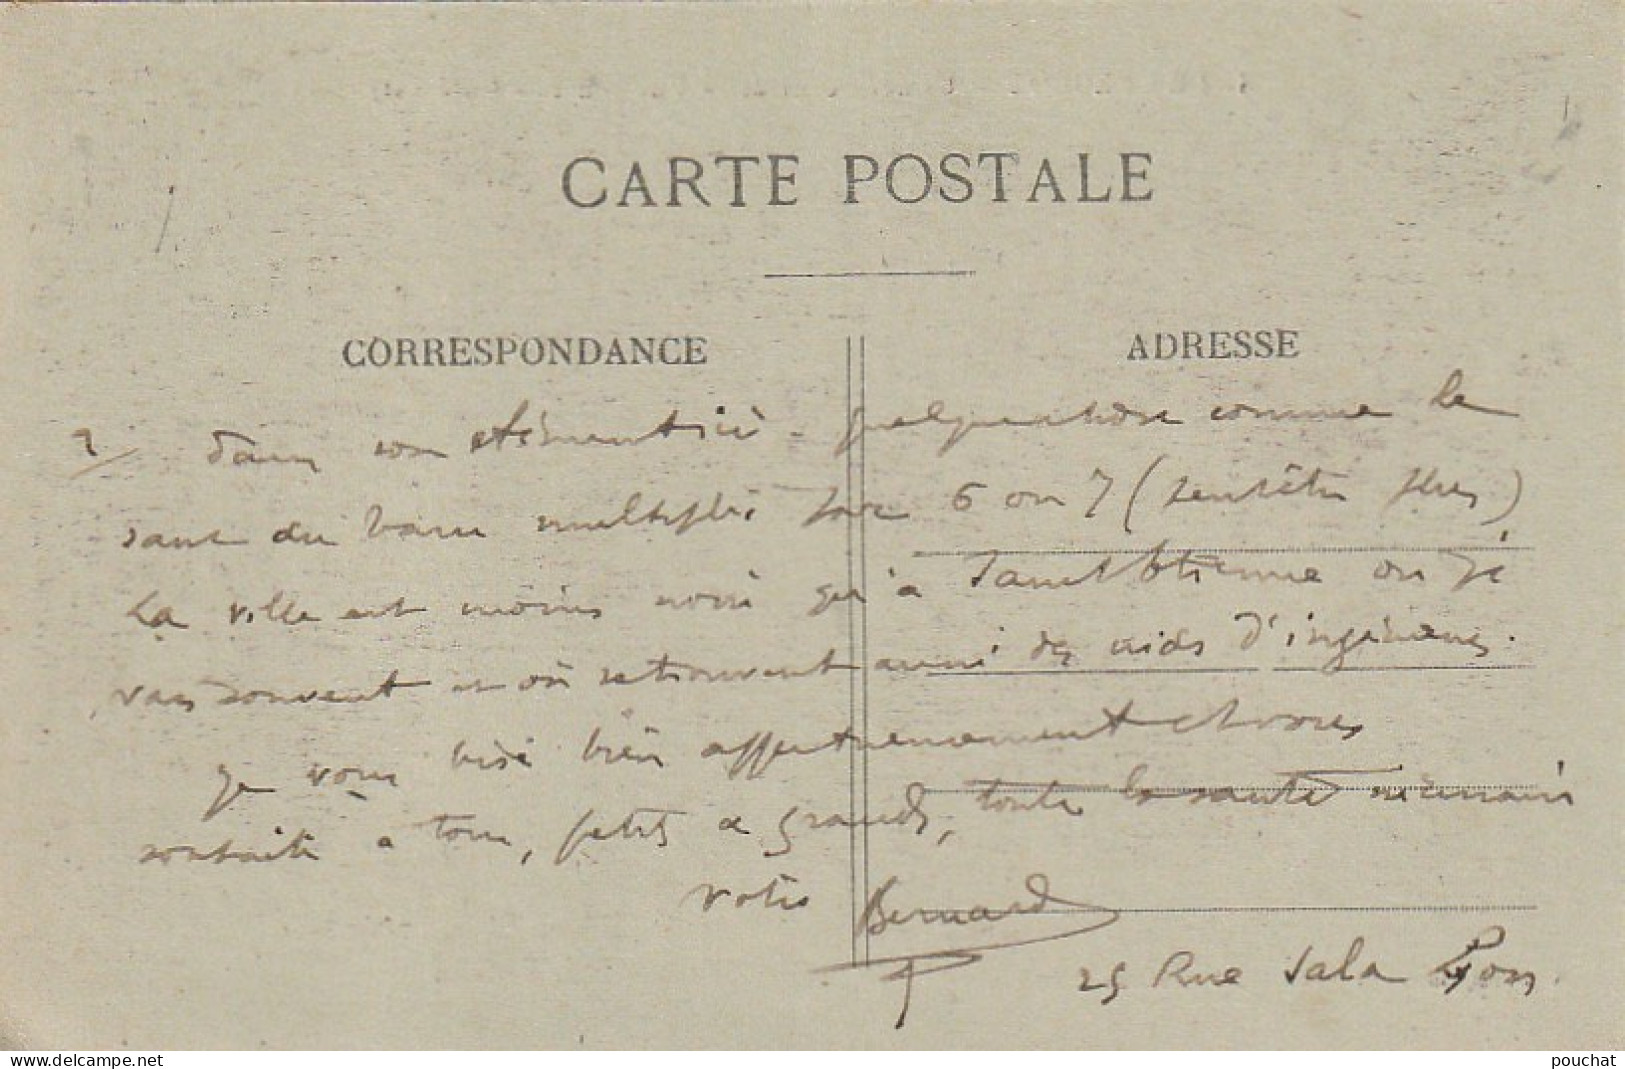 CARTE POSTALE
CORRESPONDANCE
ADRESSE
2/ dans son quelque chose comme le
saut du multiplié par 6 ou 7 (peut être plus)
La ville est moins noire qu'à Saint Etienne où je
vais souvent et où se trouvent aussi des d'ingénieurs.
Je vous bien affectueusement
souhaite à tous, petits et grands, toute la santé
votre Bernard
25 Rue Sala Lyon.
www.delcampe.net
pouchat